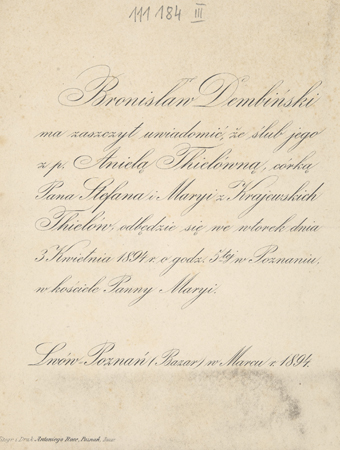 111 184 III
Bronisław Dembiński
ma zaszczyt uwiadomić, że ślub jego
z p. Anielą Thielówną, córką
Pana Stefana i Maryi z Krajewskich
Thielów, odbędzie się we wtorek dnia
3 Kwietnia 1894 r. o godz. 5tej w Poznaniu,
w kościele Panny Maryi.
Lwów-Poznań (Bazar) w Marcu r. 1894.
i Druk Antoniego Rose, Poznań, Bazar